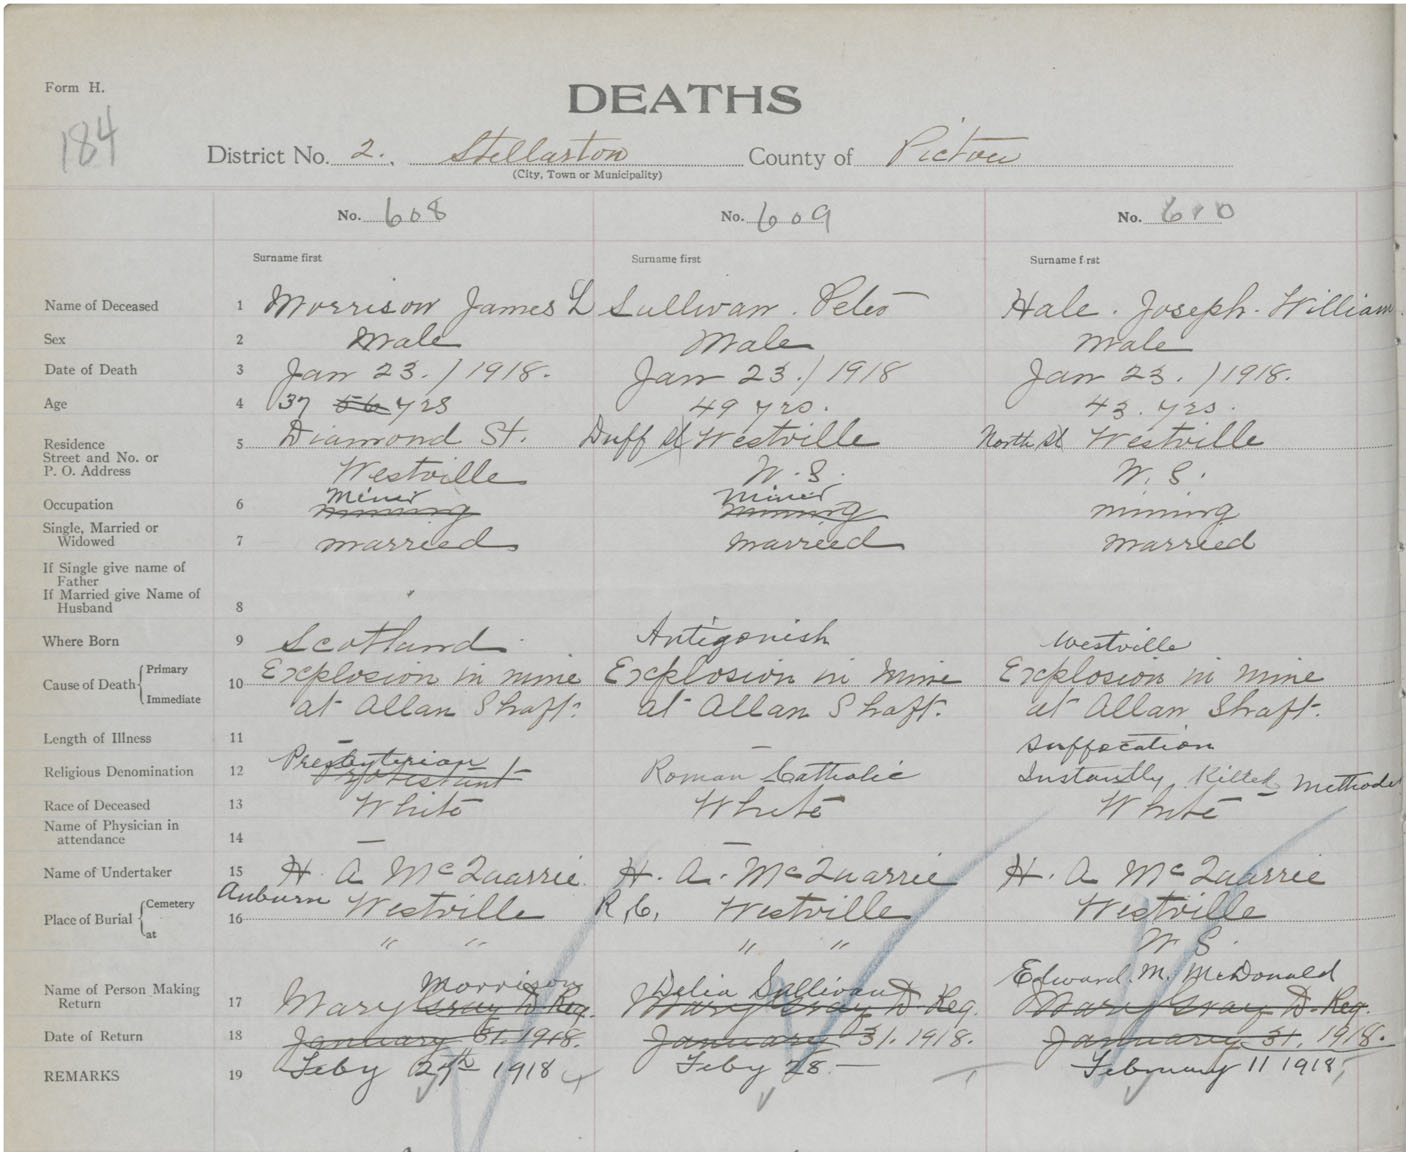 Form H.
DEATHS
184
District No. 2. Stellarton County of Pictou
(City, Town or Municipality)
No. 608 No. 609 No. 610
Surname first Surname first Surname first
Name of Deceased 1 Morrison James L Sullivan. Peter Hale. Joseph. William
Sex 2 Male Male Male
Date of Death 3 Jan 23./1918. Jan 23./1918 Jan 23./1918.
Age 4 37 56 yrs 49 yrs. 43. yrs.
Residence 5 Diamond St. Duff St Westville North St Westville
Street and No. or
P. O. Address Westville N.S. N.S.
Miner Miner
Occupation 6 mining mining mining
Single, Married or
Widowed 7 married married married
If Single give name of
Father
If Married give Name of
Husband 8
Where Born 9 Scotland Antigonish Westville
Cause of Death { Primary 10 Explosion in mine Explosion in Mine Explosion in mine
Immediate at Allan Shaft. at Allan Shaft. at Allan Shaft.
Length of Illness 11 — — Suffocation
Presbyterian
Religious Denomination 12 Protestant Roman Catholic Instantly Killed Methodis
Race of Deceased 13 White White White
Name of Physician in
attendance 14 — —
Name of Undertaker 15 H. A McQuarrie. H. A. McQuarrie H. A McQuarrie
Place of Burial { Cemetery 16 Auburn Westville R.C. Westville Westville
at " " " " N S.
Morrison Delia Sullivan Edward. M. McDonald
Name of Person Making
Return 17 Mary Gray D Reg. Mary Gray D Reg. Mary Gray D. Reg.
Date of Return 18 January 31. 1918. January 31. 1918. January 31. 1918.
REMARKS 19 Feby 27th 1918 Feby 28 — February 11 1918